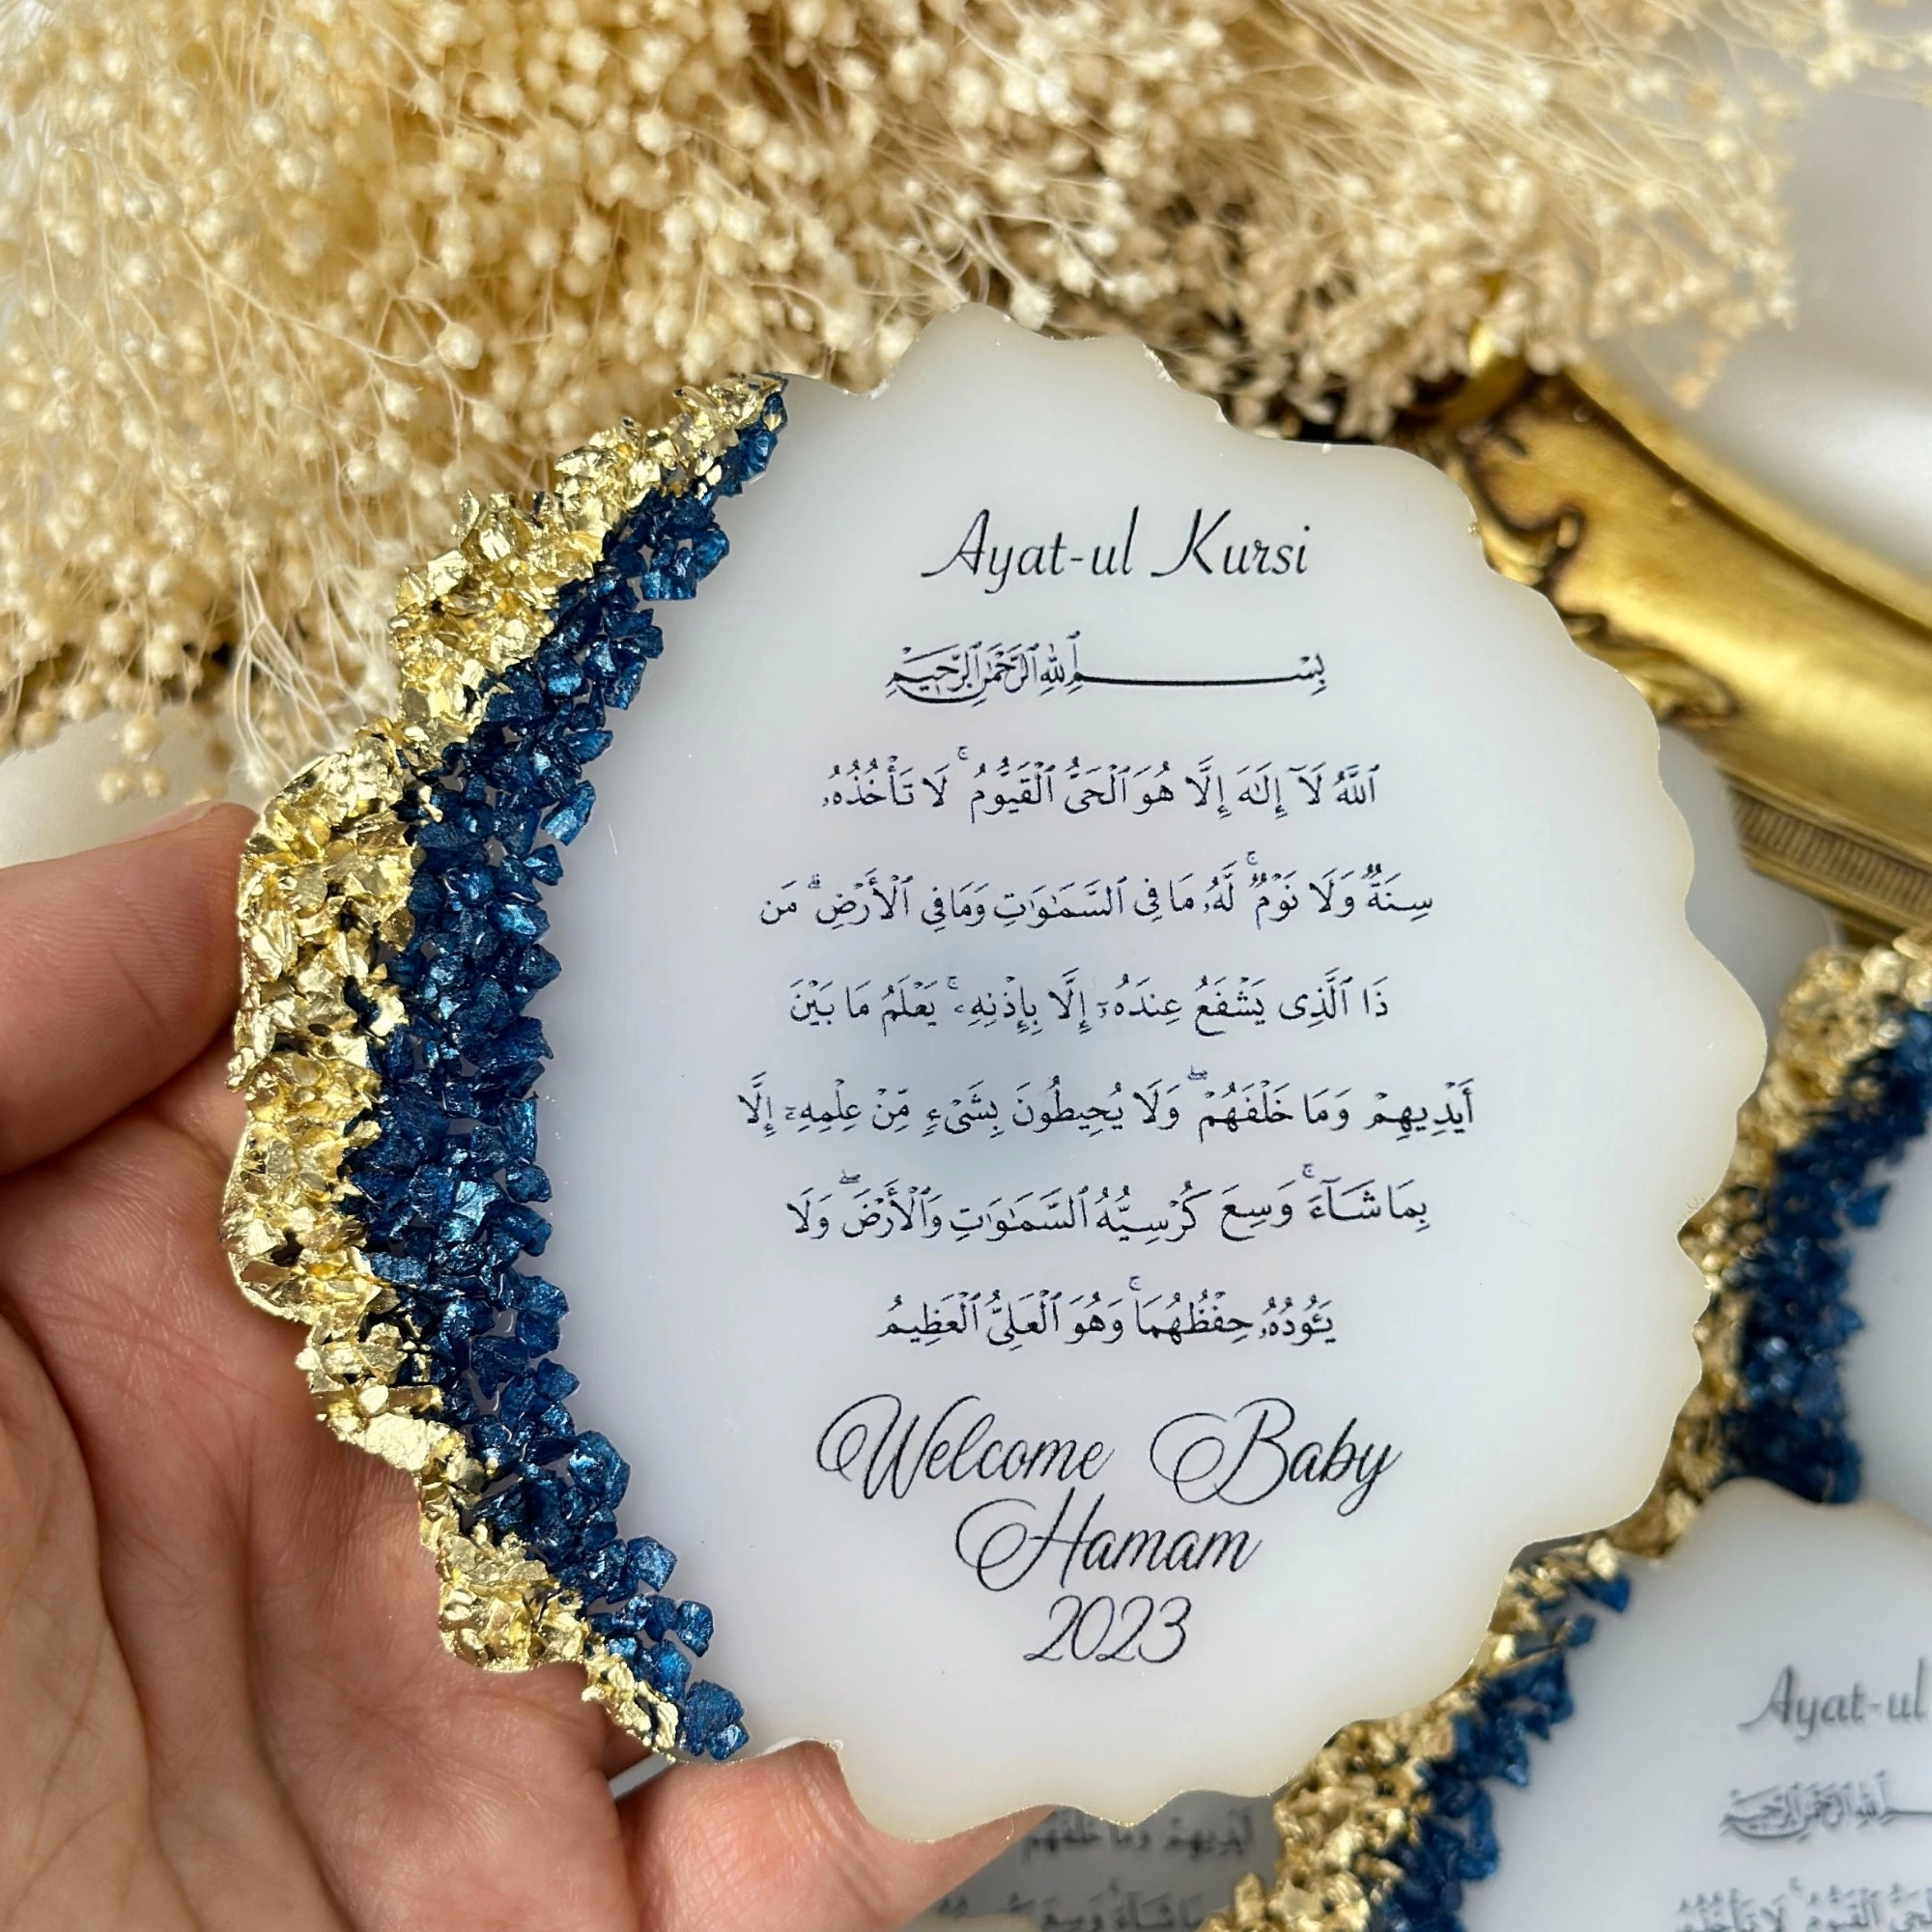 Ayat-ul Kursi
بِسْمِ ٱللَّهِ ٱلرَّحْمَٰنِ ٱلرَّحِيمِ
ٱللَّهُ لَآ إِلَٰهَ إِلَّا هُوَ ٱلْحَىُّ ٱلْقَيُّومُ ۚ لَا تَأْخُذُهُۥ
سِنَةٌ وَلَا نَوْمٌ ۚ لَّهُۥ مَا فِى ٱلسَّمَٰوَٰتِ وَمَا فِى ٱلْأَرْضِ ۗ مَن
ذَا ٱلَّذِى يَشْفَعُ عِندَهُۥٓ إِلَّا بِإِذْنِهِۦ ۚ يَعْلَمُ مَا بَيْنَ
أَيْدِيهِمْ وَمَا خَلْفَهُمْ ۖ وَلَا يُحِيطُونَ بِشَىْءٍ مِّنْ عِلْمِهِۦٓ إِلَّا
بِمَا شَآءَ ۚ وَسِعَ كُرْسِيُّهُ ٱلسَّمَٰوَٰتِ وَٱلْأَرْضَ ۖ وَلَا
يَـُٔودُهُۥ حِفْظُهُمَا ۚ وَهُوَ ٱلْعَلِىُّ ٱلْعَظِيمُ
Welcome Baby
Hamam
2023
أَيْدِيهِمْ وَمَا خَلْفَهُمْ
Ayat-ul